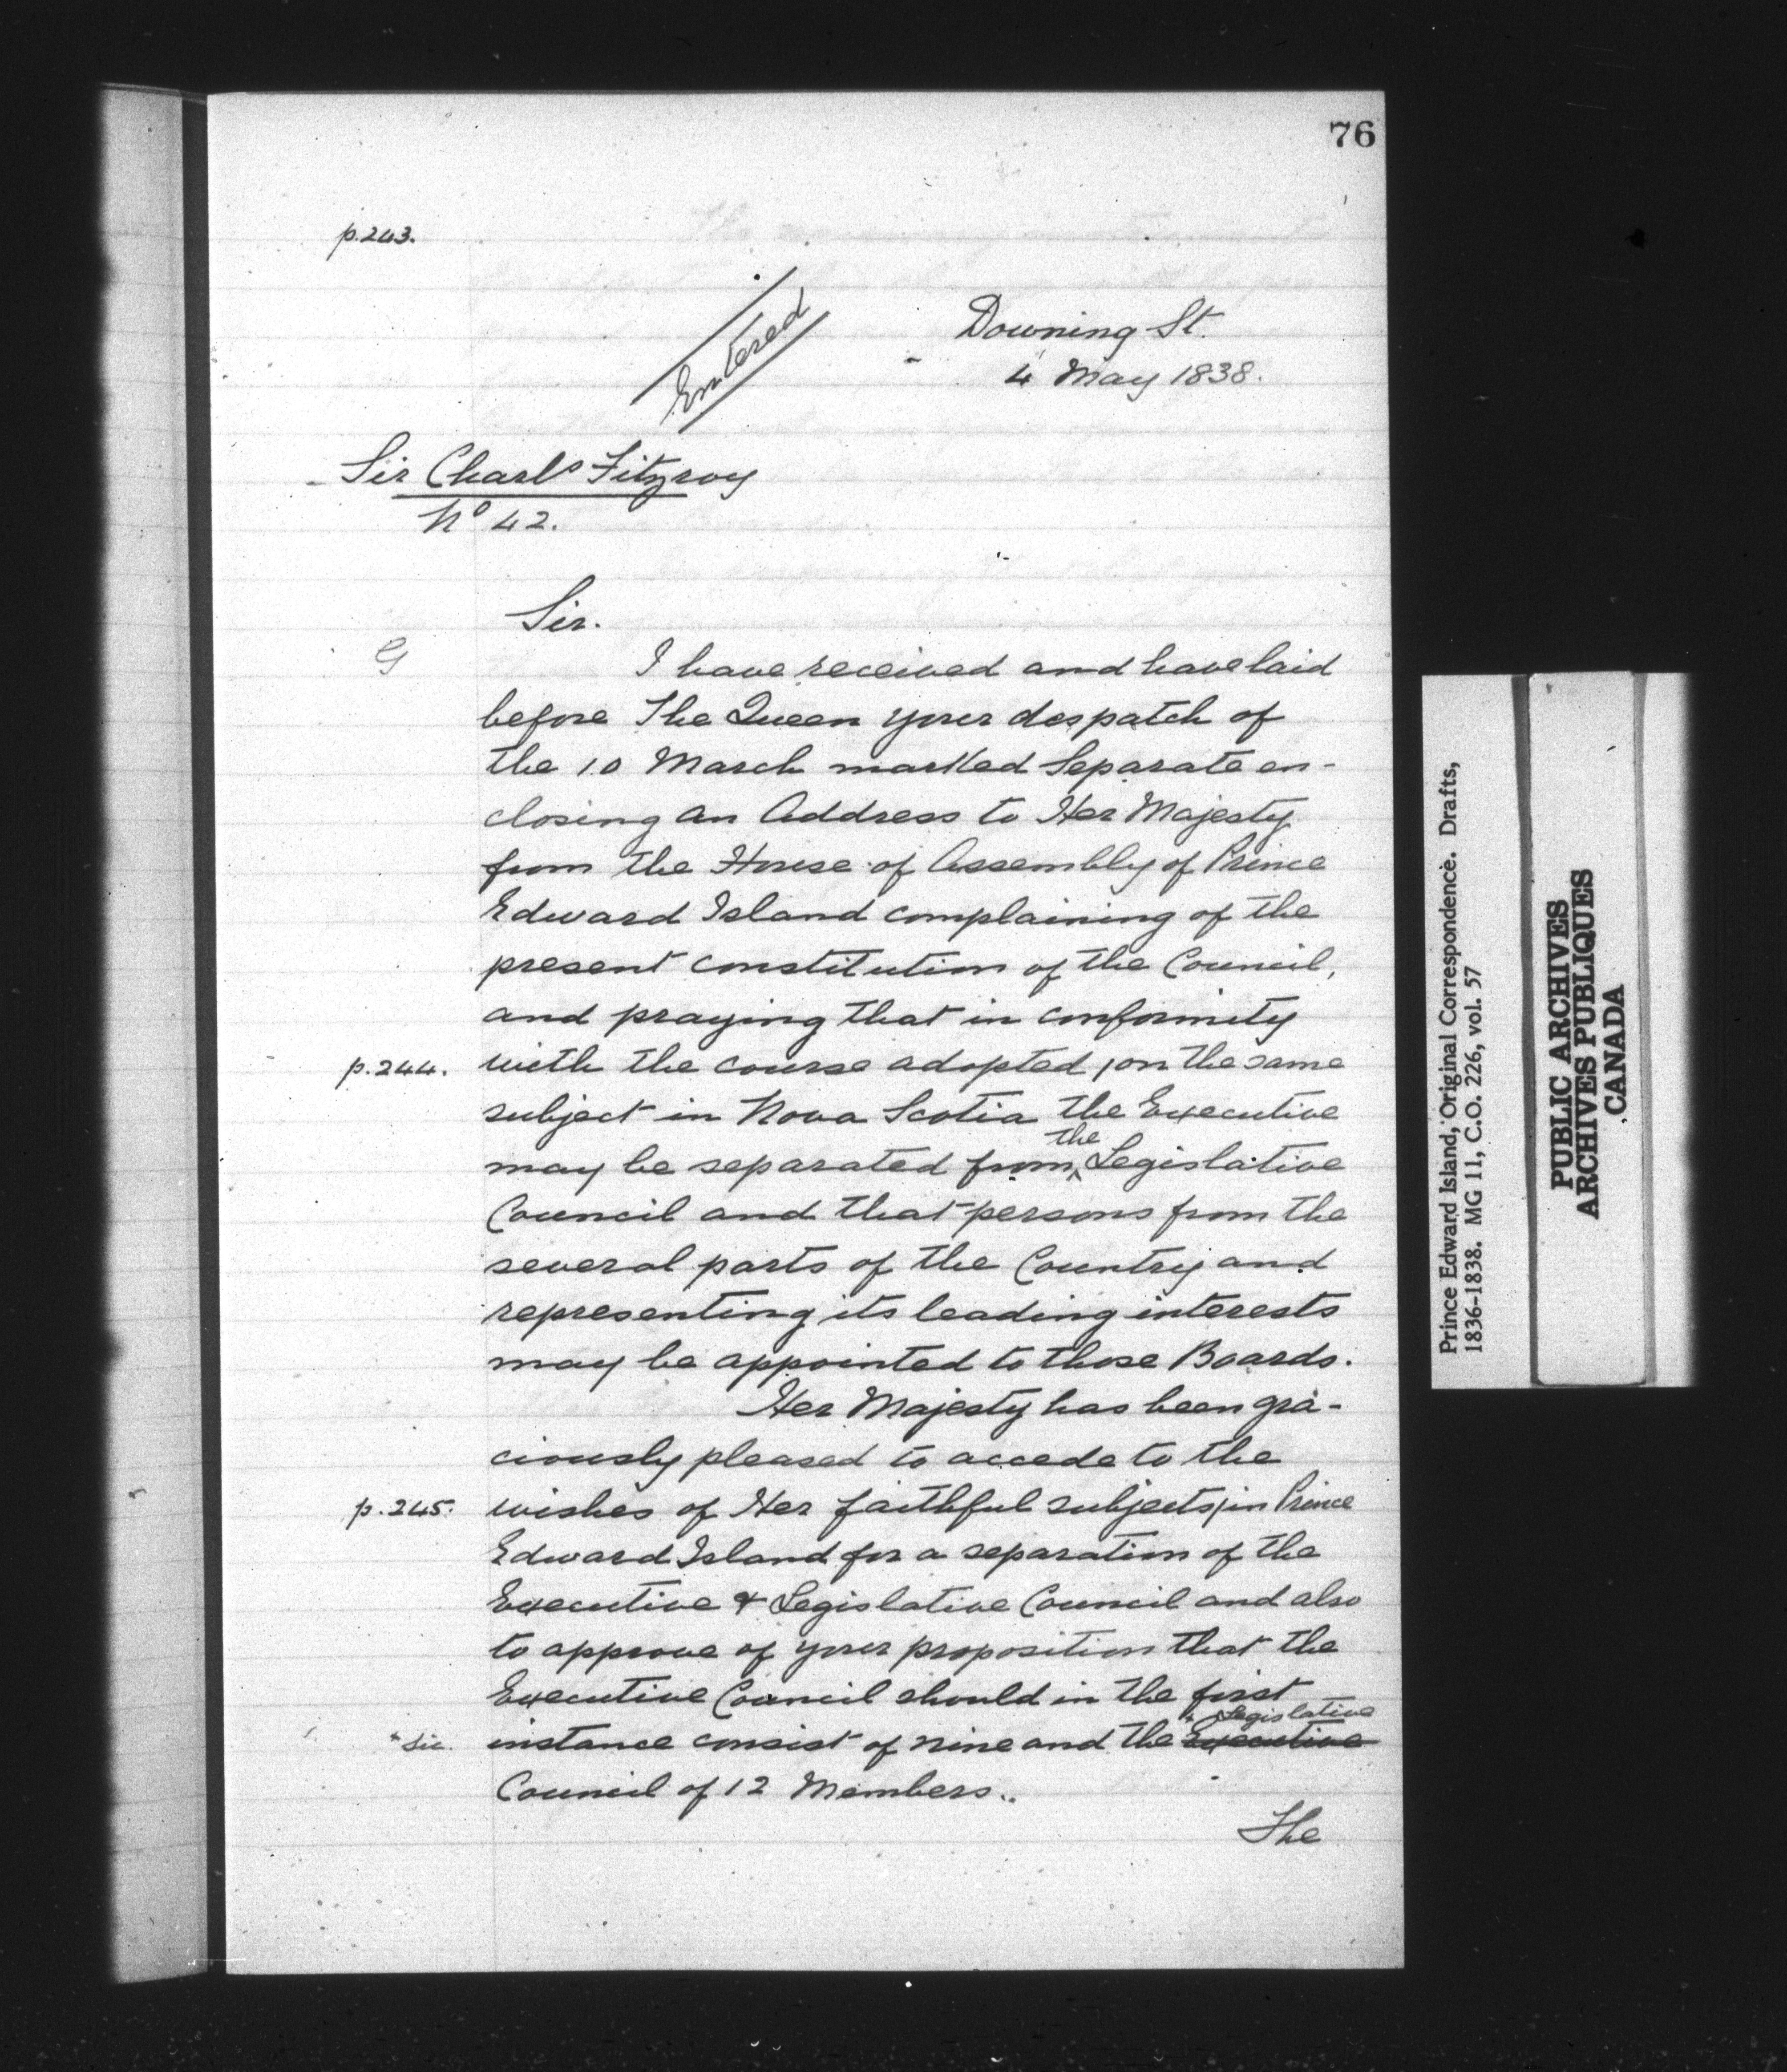 76
p.243.
Entered
Downing St.
4 May 1838.
Sir Charls Fitzroy
No 42.
Sir.
G
I have received and have laid
before The Queen your despatch of
the 10 March marked Separate en-
closing an Address to Her Majesty
from the House of Assembly of Prince
Edward Island complaining of the
present constitution of the Council,
and praying that in conformity
p.244. with the course adopted / on the same
subject in Nova Scotia the Executive
may be separated from ^the Legislative
Council and that persons from the
several parts of the Country and
representing its leading interests
may be appointed to those Boards.
Her Majesty has been gra-
ciously pleased to accede to the
p.245. wishes of Her faithful subjects / in Prince
Edward Island for a separation of the
Executive & Legislative Council and also
to approve of your proposition that the
Executive Council should in the first
* Legislative
* sic. instance consist of nine and the Executive
Council of 12 Members..
The
Prince Edward Island, Original Correspondence. Drafts,
1836-1838. MG 11, C.O. 226, vol. 57
PUBLIC ARCHIVES
ARCHIVES PUBLIQUES
CANADA